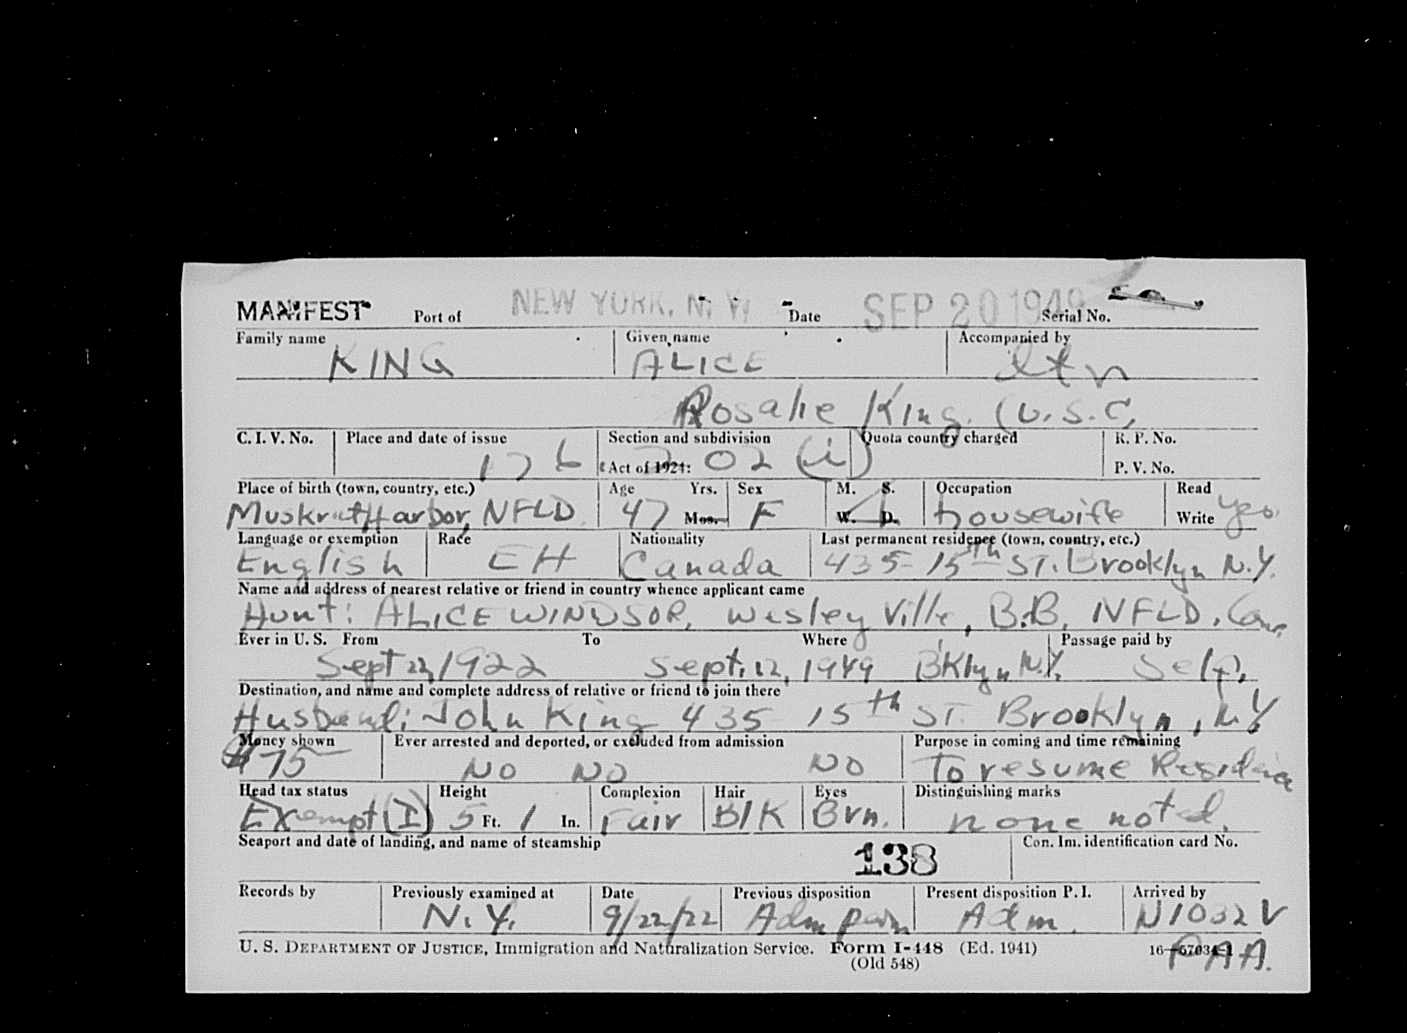 MANIFEST Port of NEW YORK, N. Y. Date SEP 20 1949 Serial No.
Family name Given name Accompanied by
KING ALICE
Rosalie King (U.S.C,
C. I. V. No. Place and date of issue Section and subdivision Quota country charged R. P. No.
176 Act of 1924: 202 (i) P. V. No.
Place of birth (town, country, etc.) Age Yrs. Sex M. S. Occupation Read
Muskrat Harbor, NFLD 47 Mos. F W. D. housewife Write yes
Language or exemption Race Nationality Last permanent residence (town, country, etc.)
English EH Canada 435 15th ST. Brooklyn N.Y.
Name and address of nearest relative or friend in country whence applicant came
Aunt: ALICE WINDSOR, Wesley Ville, B.B, NFLD, Can.
Ever in U. S. From To Where Passage paid by
Sept 22, 1922 Sept. 12, 1949 B'klyn N.Y. Self.
Destination, and name and complete address of relative or friend to join there
Husband: John King 435 15th ST. Brooklyn, N.Y
Money shown Ever arrested and deported, or excluded from admission Purpose in coming and time remaining
$75 NO NO NO To resume Residence
Head tax status Height Complexion Hair Eyes Distinguishing marks
Exempt (I) 5 Ft. 1 In. Fair Blk Brn. none noted.
Seaport and date of landing, and name of steamship Con. Im. identification card No.
138
Records by Previously examined at Date Previous disposition Present disposition P. I. Arrived by
N.Y. 9/22/22 Adm perm Adm. N1032V
U. S. DEPARTMENT OF JUSTICE, Immigration and Naturalization Service. Form I-448 (Ed. 1941) 16—57034-1 PAA.
(Old 548)